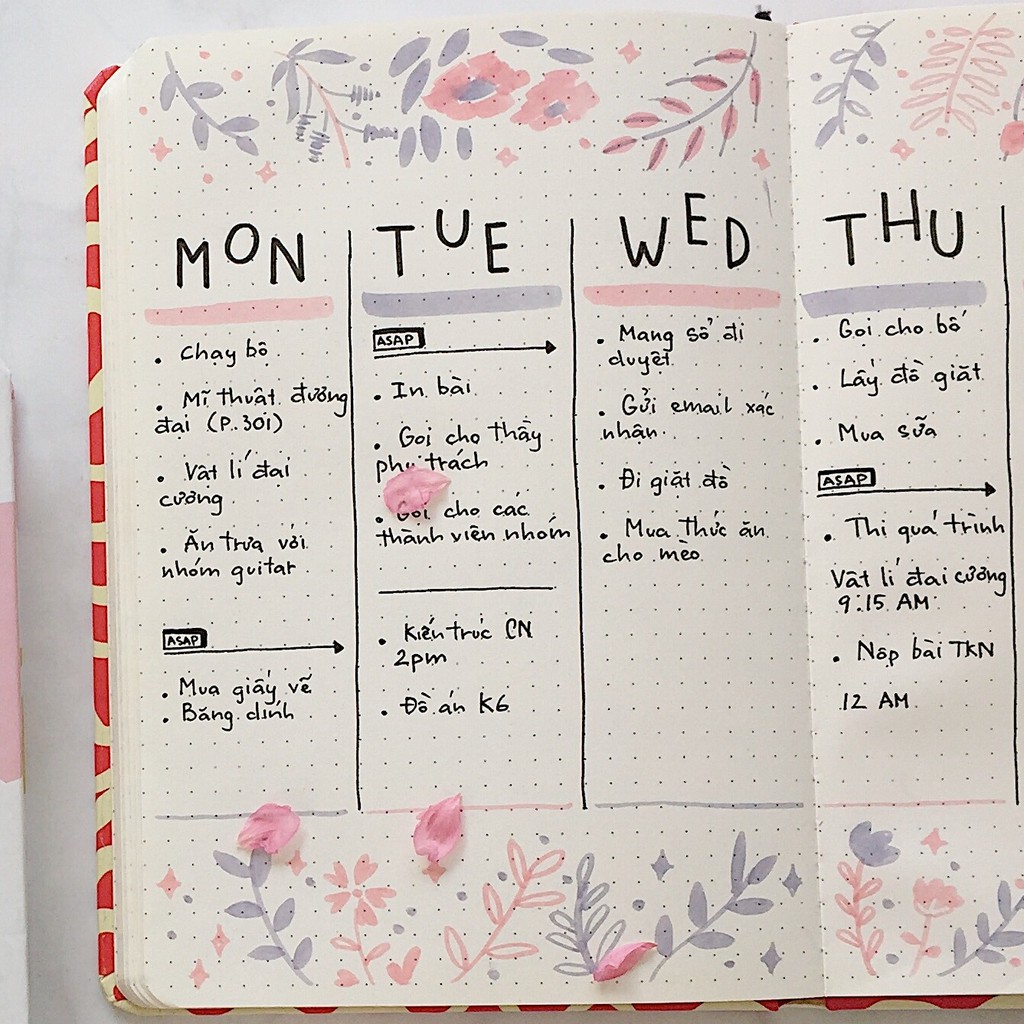 MON
• Chạy bộ
• Mĩ thuật đương
đại (P.301)
• Vật lí đại
cương
• Ăn trưa với
nhóm guitar
ASAP
• Mua giấy vẽ
• Băng dính
TUE
ASAP
• In bài
• Gọi cho thầy
phụ trách
• Gọi cho các
thành viên nhóm
• Kiến trúc CN
2pm
• Đồ án K6
WED
• Mang sổ đi
duyệt
• Gửi email xác
nhận
• Đi giặt đồ
• Mua thức ăn
cho mèo
THU
• Gọi cho bố
• Lấy đồ giặt
• Mua sữa
ASAP
• Thi quá trình
Vật lí đại cương
9:15 AM
• Nộp bài TKN
12 AM